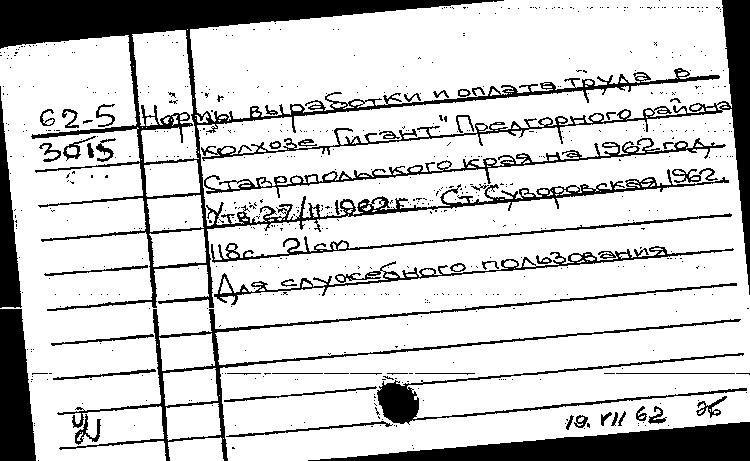 62-5 Нормы выработки и оплата труда в
3015 колхозе „Гигант" Предгорного района
Ставропольского края на 1962 год.
Утв. 27/II 1962 г. Ст. Суворовская, 1962.
118 с. 21 см
Для служебного пользования
19. VII 62